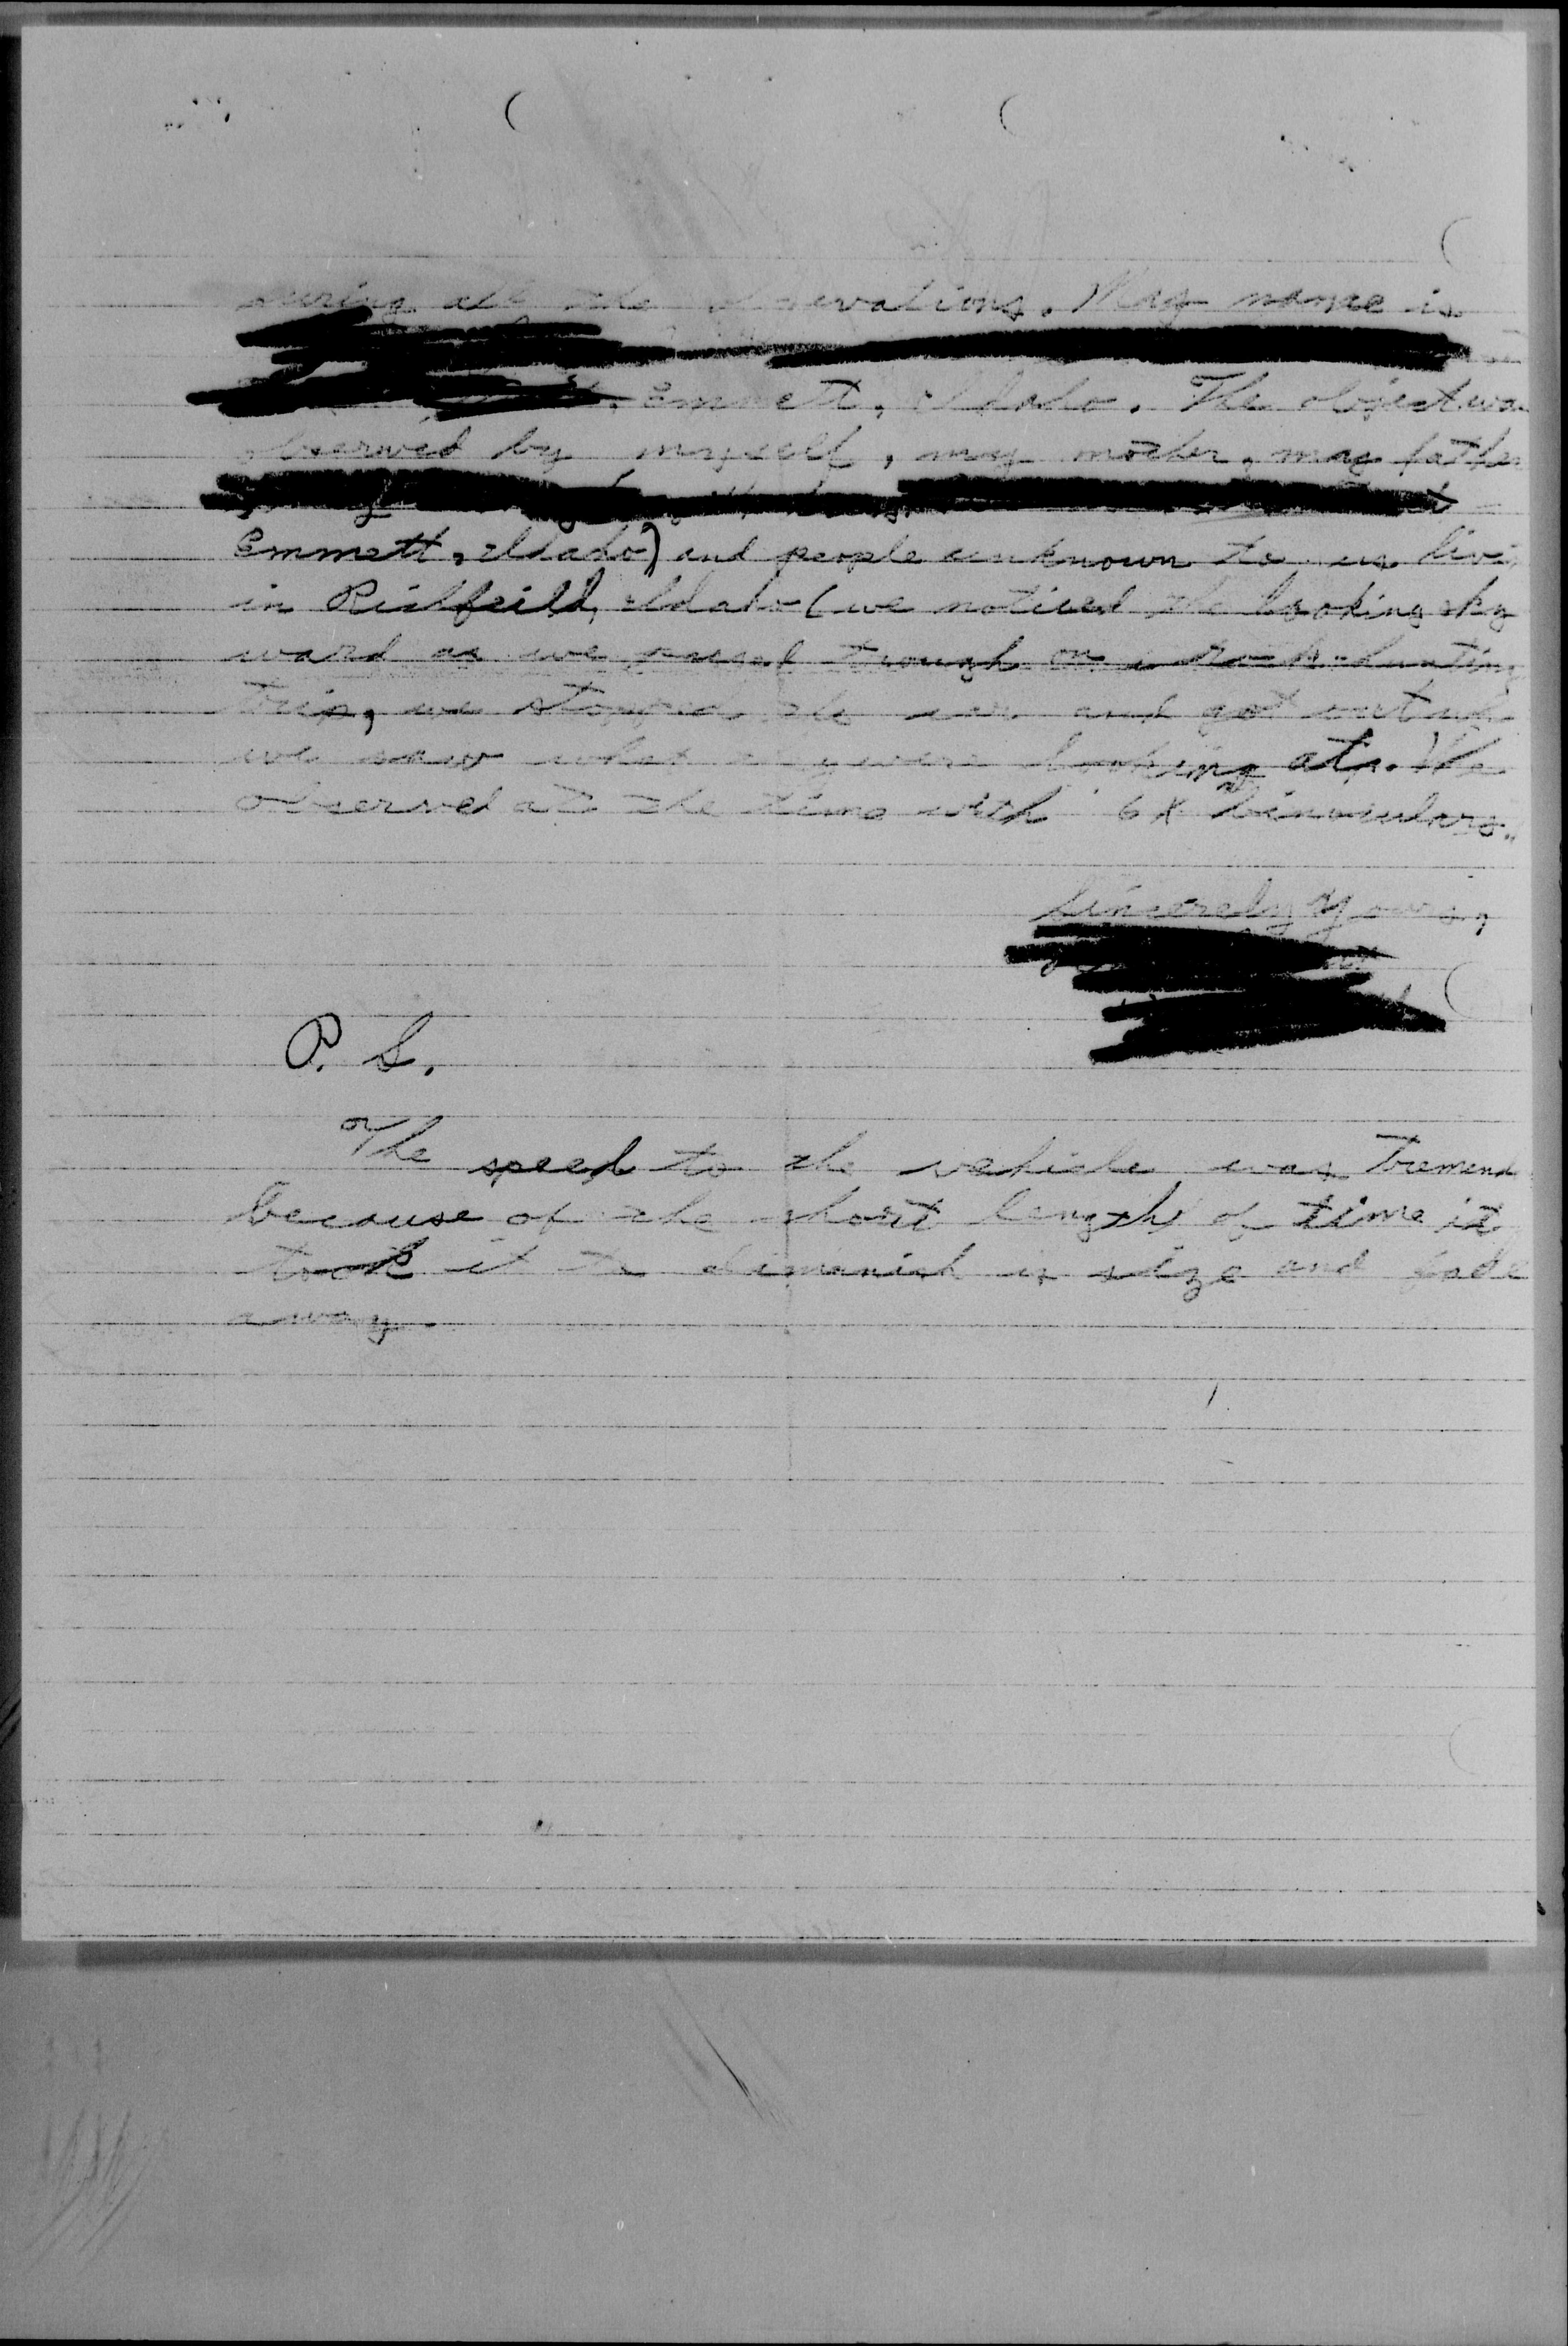 during all the observations. My name is
Emmett, Idaho. The object was
observed by myself, my mother, my father
Emmett, Idaho) and people unknown to us livi
in Richfeild, Idaho (we noticed the looking sky
ward as we passed trough on a rock-hunting
trip, we stopped the car and got out and
we saw what they were looking at). We
observed at the time with 6X binoculars.
Sincerely Yours,
P. S.
The speed to the vehicle was tremend
because of the short length of time it
took it to dimanish in size and fade
away.